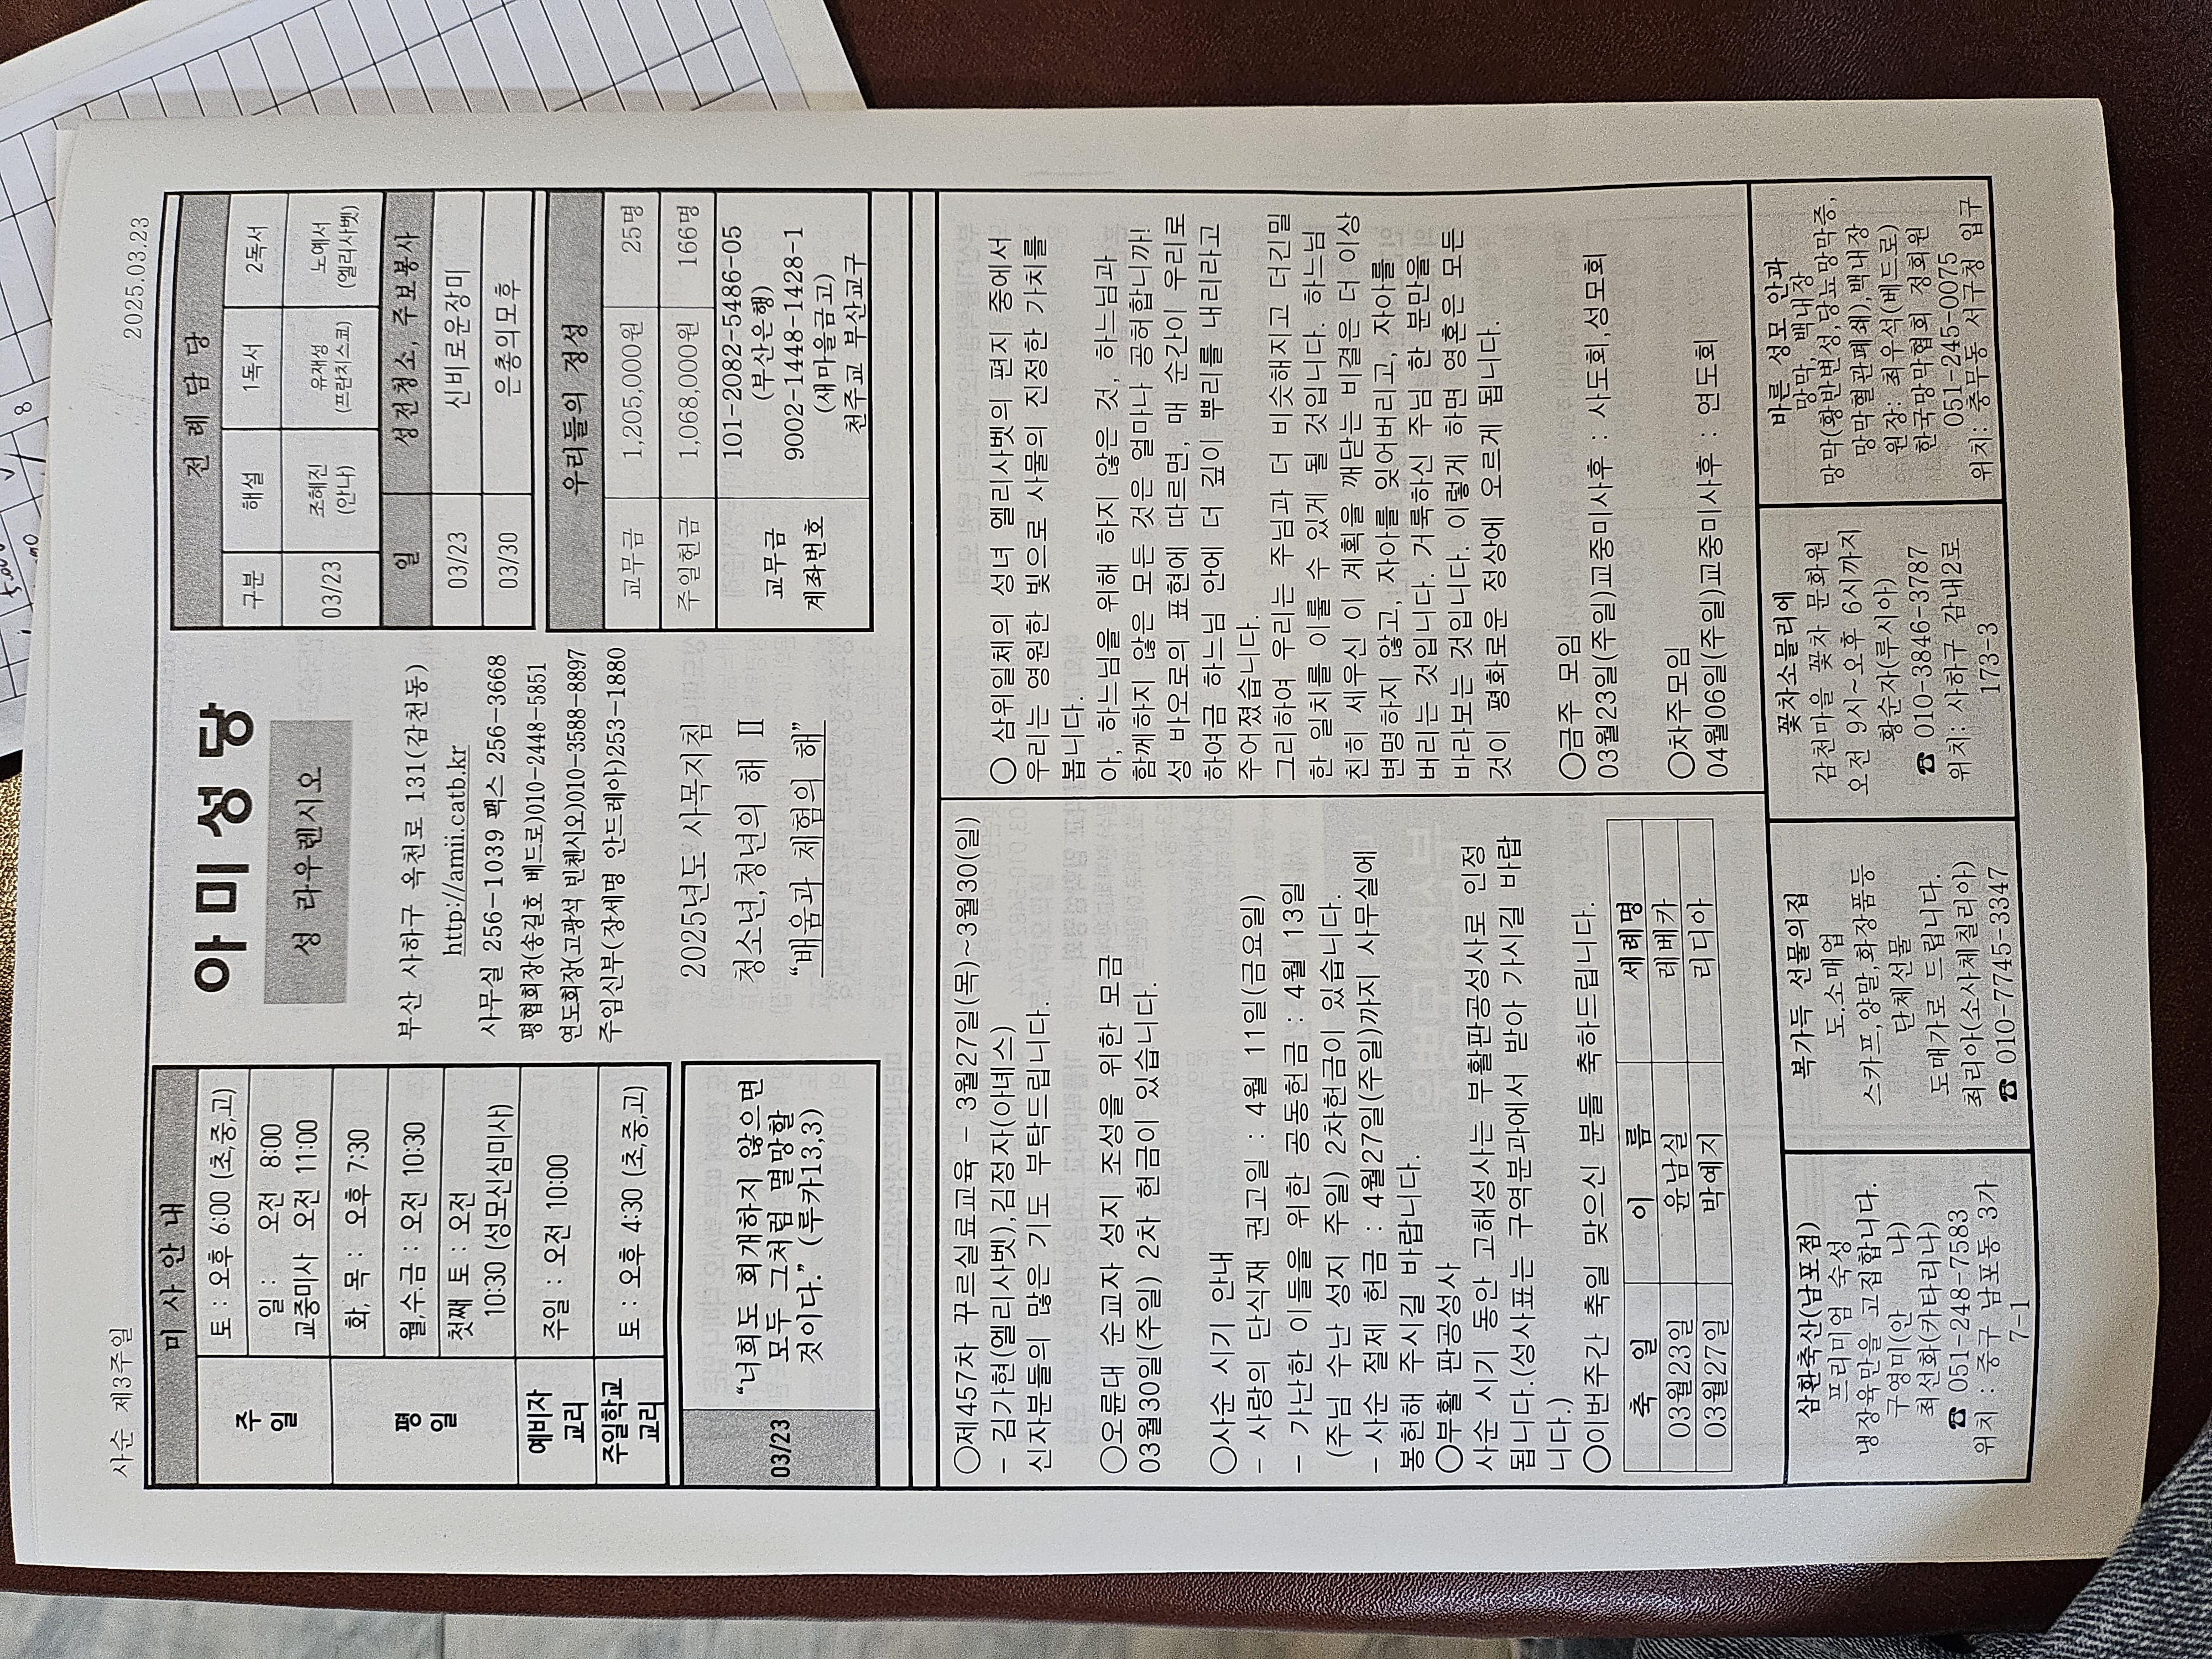 사순 제3주일
2025.03.23
미 사 안 내
주일
토 : 오후 6:00 (초,중,고)
일 : 오전 8:00
교중미사 오전 11:00
평일
화, 목 : 오후 7:30
월,수,금 : 오전 10:30
첫째 토 : 오전
10:30 (성모신심미사)
예비자
교리
주일 : 오전 10:00
주일학교
교리
토 : 오후 4:30 (초,중,고)
03/23
“너희도 회개하지 않으면
모두 그처럼 멸망할
것이다.” (루카13,3)
아 미 성 당
성 라우렌시오
부산 사하구 옥천로 131(감천동)
http://amii.catb.kr
사무실 256-1039 팩스 256-3668
평협회장(송길호 베드로)010-2448-5851
연도회장(고광석 빈첸시오)010-3588-8897
주임신부(장세명 안드레아)253-1880
2025년도 사목지침
청소년,청년의 해 Ⅱ
“배움과 체험의 해”
전 례 담 당
구분 해설 1독서 2독서
03/23 조혜진 (안나) 유재성 (프란치스코) 노예서 (엘리사벳)
일 성전청소, 주보봉사
03/23 신비로운장미
03/30 은총의모후
우리들의 정성
교무금 1,205,000원 25명
주일헌금 1,068,000원 166명
교무금
계좌번호
101-2082-5486-05
(부산은행)
9002-1448-1428-1
(새마을금고)
천주교 부산교구
○제457차 꾸르실료교육 - 3월27일(목)~3월30(일)
- 김가현(엘리사벳),김정자(아녜스)
신자분들의 많은 기도 부탁드립니다.
○오륜대 순교자 성지 조성을 위한 모금
03월30일(주일) 2차 헌금이 있습니다.
○사순 시기 안내
- 사랑의 단식재 권고일 : 4월 11일(금요일)
- 가난한 이들을 위한 공동헌금 : 4월 13일
(주님 수난 성지 주일) 2차헌금이 있습니다.
- 사순 절제 헌금 : 4월27일(주일)까지 사무실에
봉헌해 주시길 바랍니다.
○부활 판공성사
사순 시기 동안 고해성사는 부활판공성사로 인정
됩니다.(성사표는 구역분과에서 받아 가시길 바랍
니다.)
○이번주간 축일 맞으신 분들 축하드립니다.
축 일 이 름 세례명
03월23일 윤남실 레베카
03월27일 박예지 리디아
○ 삼위일체의 성녀 엘리사벳의 편지 중에서
우리는 영원한 빛으로 사물의 진정한 가치를
봅니다.
아, 하느님을 위해 하지 않은 것, 하느님과
함께하지 않은 모든 것은 얼마나 공허합니까!
성 바오로의 표현에 따르면, 매 순간이 우리로
하여금 하느님 안에 더 깊이 뿌리를 내리라고
주어졌습니다.
그리하여 우리는 주님과 더 비슷해지고 더긴밀
한 일치를 이룰 수 있게 될 것입니다. 하느님
친히 세우신 이 계획을 깨닫는 비결은 더 이상
변명하지 않고, 자아를 잊어버리고, 자아를
버리는 것입니다. 거룩하신 주님 한 분만을
바라보는 것입니다. 이렇게 하면 영혼은 모든
것이 평화로운 정상에 오르게 됩니다.
○금주 모임
03월23일(주일)교중미사후 : 사도회,성모회
○차주모임
04월06일(주일)교중미사후 : 연도회
삼환축산(남포점)
프리미엄 숙성
냉장육만을 고집합니다.
구영미(안 나)
최선화(카타리나)
☎ 051-248-7583
위치 : 중구 남포동 3가
7-1
복가득 선물의집
도.소매업
스카프,양말,화장품등
단체선물
도매가로 드립니다.
최리아(소사체칠리아)
☎ 010-7745-3347
꽃차소믈리에
감천마을 꽃차 문화원
오전 9시~오후 6시까지
황순자(루시아)
☎ 010-3846-3787
위치: 사하구 감내2로
173-3
바른 성모 안과
망막, 백내장
망막(황반변성,당뇨망막증,
망막혈관폐쇄),백내장
원장: 최우석(베드로)
한국망막협회 정회원
051-245-0075
위치: 충무동 서구청 입구